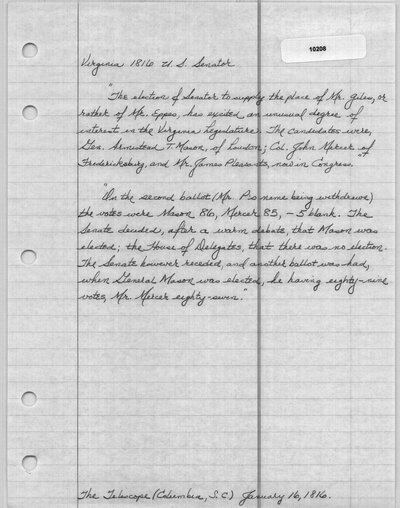 10208
Virginia 1816 U. S. Senator
"The election of Senator to supply the place of Mr. Giles, or
rather of Mr. Eppes, has excited an unusual degree of
interest in the Virginia Legislature. The candidates were,
Gen. Armistead T. Mason, of Loudon; Col. John Mercer of
Fredericksburg, and Mr. James Pleasants, now in Congress."
"On the second ballot (Mr. P's name being withdrawn)
the votes were Mason 86, Mercer 85, - 5 blank. The
Senate decided, after a warm debate, that Mason was
elected; the House of Delegates, that there was no election.
The Senate however receded, and another ballot was had,
when General Mason was elected, he having eighty-nine
votes, Mr. Mercer eighty-seven."
The Telescope (Columbia, S. C.) January 16, 1816.